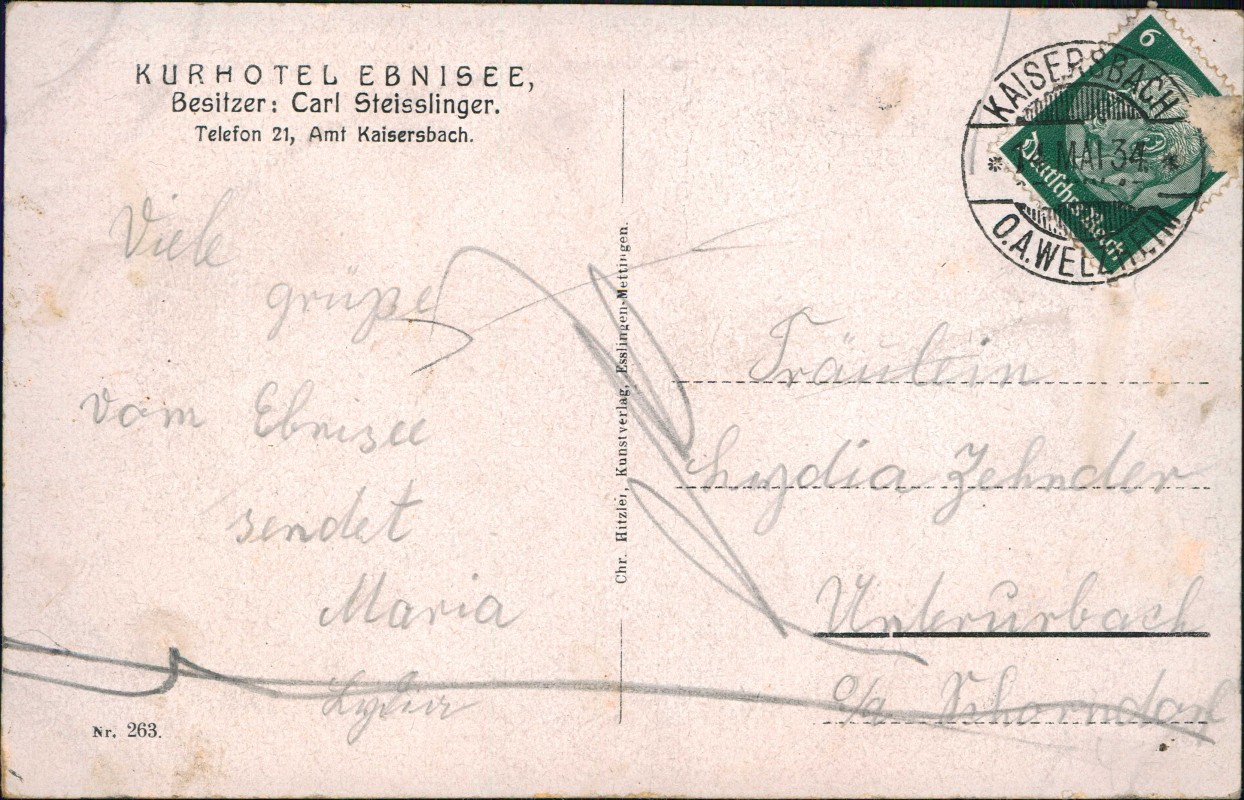 KURHOTEL EBNISEE,
Besitzer: Carl Steisslinger.
Telefon 21, Amt Kaisersbach.
6
Deutsches Reich
KAISERSBACH
MAI 34
O.A. WELZHEIM
Viele
grüße
vom Ebnisee
sendet
Maria
Lydia
Nr. 263.
Chr. Hitzler, Kunstverlag, Esslingen-Mettingen.
Fräulein
Lydia Zehnder
Unterurbach
o/a Schorndorf